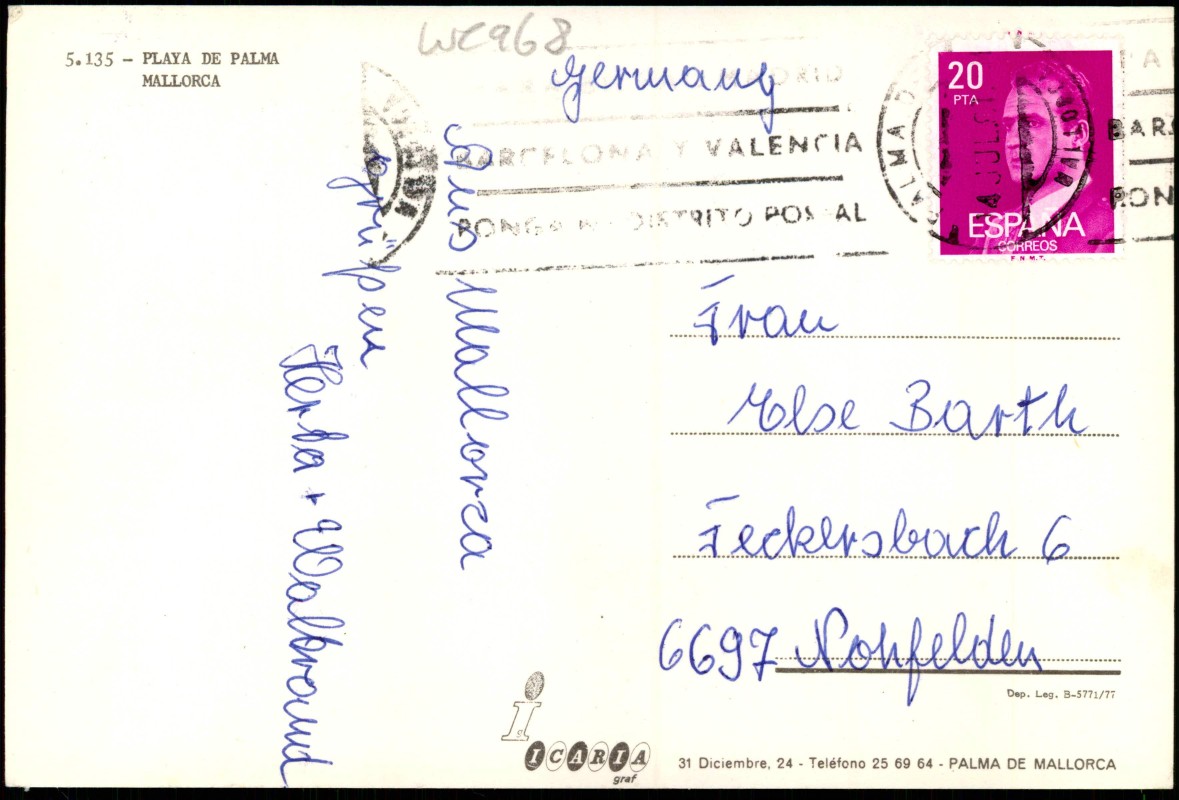 5.135 - PLAYA DE PALMA
MALLORCA
WC968
Germany
MADRID
BARCELONA Y VALENCIA
PONGA Nº DISTRITO POSTAL
20
PTA
ESPAÑA
CORREOS
F.N.M.T.
BAR
PON
Aus Mallorca
grüßen
Herta + Waltraud
Frau
Else Barth
Feckersbach 6
6697 Nohfelden
Dep. Leg. B-5771/77
I.g.
ICARIA
graf
31 Diciembre, 24 - Teléfono 25 69 64 - PALMA DE MALLORCA